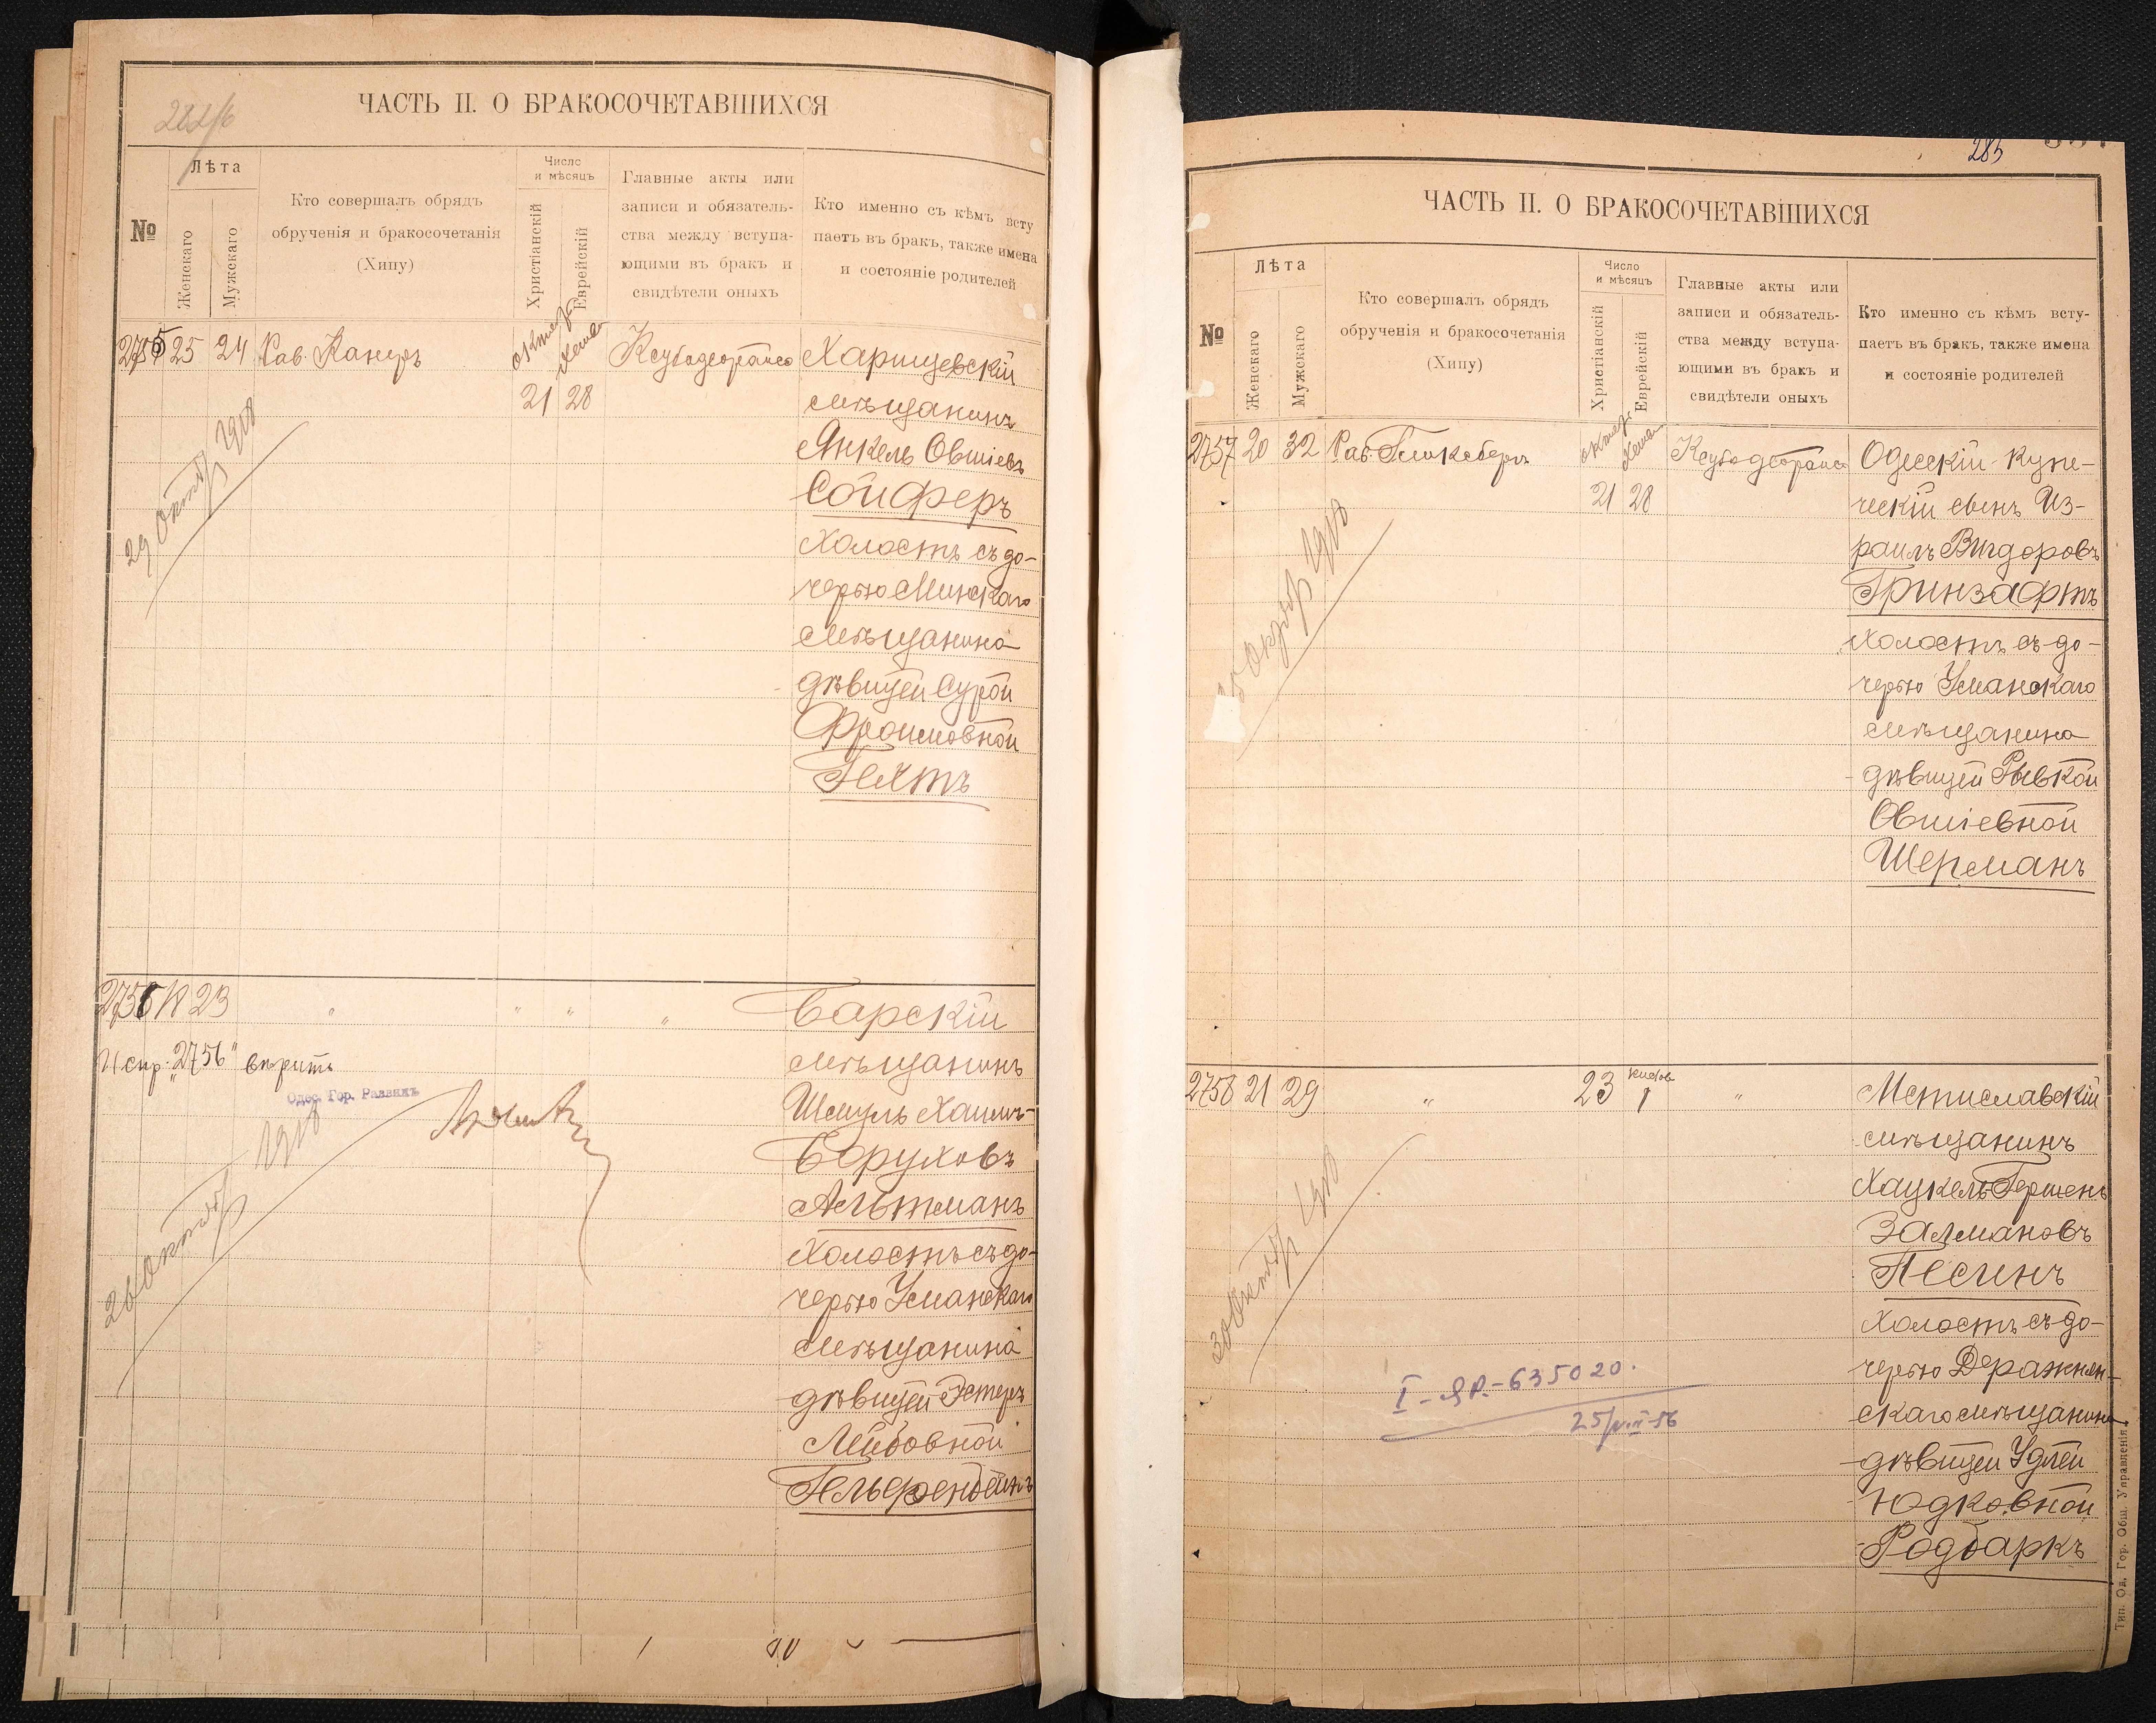 ЧАСТЬ II. О БРАКОСОЧЕТАВШИХСЯ
№
Лѣта
Женскаго
Мужскаго
Кто совершалъ обрядъ
обрученія и бракосочетанія
(Хипу)
Число
и мѣсяцъ
Христіанскій
Еврейскій
Главные акты или
записи и обязатель-
ства между вступа-
ющими въ бракъ и
свидѣтели оныхъ
Кто именно съ кѣмъ всту
паетъ въ бракъ, также имена
и состояніе родителей
2755 25 24 Рав. Канеръ
21 28
Харищевскій
мѣщанинъ
Янкель Овшіевъ
Сойферъ
холостъ съ до-
черью Минскаго
мѣщанина
дѣвицей Сурой
Фроимовной
Гехтъ
29 октяб 1918
2756 18 23 " " " "
Испр. "2756" вѣрить
Одес. Гор. Раввинъ
26 октяб 1918
Барскій
мѣщанинъ
Шмуль Хаимъ-
Беруховъ
Альтманъ
холостъ съ до-
черью Уманскаго
мѣщанина
дѣвицей Эстеръ
Лейбовной
Гельфенбейнъ
285
ЧАСТЬ II. О БРАКОСОЧЕТАВШИХСЯ
№
Лѣта
Женскаго
Мужскаго
Кто совершалъ обрядъ
обрученія и бракосочетанія
(Хипу)
Число
и мѣсяцъ
Христіанскій
Еврейскій
Главные акты или
записи и обязатель-
ства между вступа-
ющими въ бракъ и
свидѣтели оныхъ
Кто именно съ кѣмъ всту-
паетъ въ бракъ, также имена
и состояніе родителей
2757 20 32 Рав. Гликсбергъ
21 28
Одесскій купе-
ческій сынъ Из-
раиль Вигдоровъ
Гринзафтъ
холостъ съ до-
черью Уманскаго
мѣщанина
дѣвицей Рывкой
Овшіевной
Шерманъ
2758 21 29 " 23 1 "
Мстиславскій
мѣщанинъ
Хацкель Гершенъ
Залмановъ
Песинъ
холостъ съ до-
черью Деражнян-
скаго мѣщанина
дѣвицей Удлей
Юдковной
Родбаркъ
30 октяб 1918
Тип. Од. Гор. Общ. Управленія.